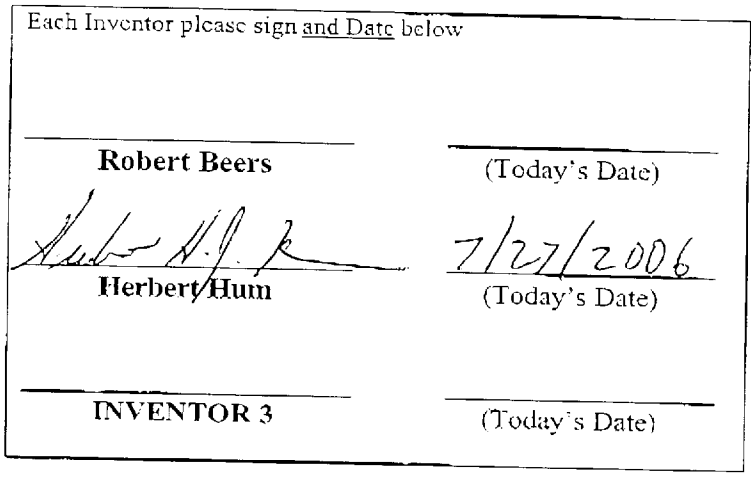 Each Inventor please sign and Date below
Robert Beers (Today's Date)
7/27/2006
Herbert Hum (Today's Date)
INVENTOR 3 (Today's Date)